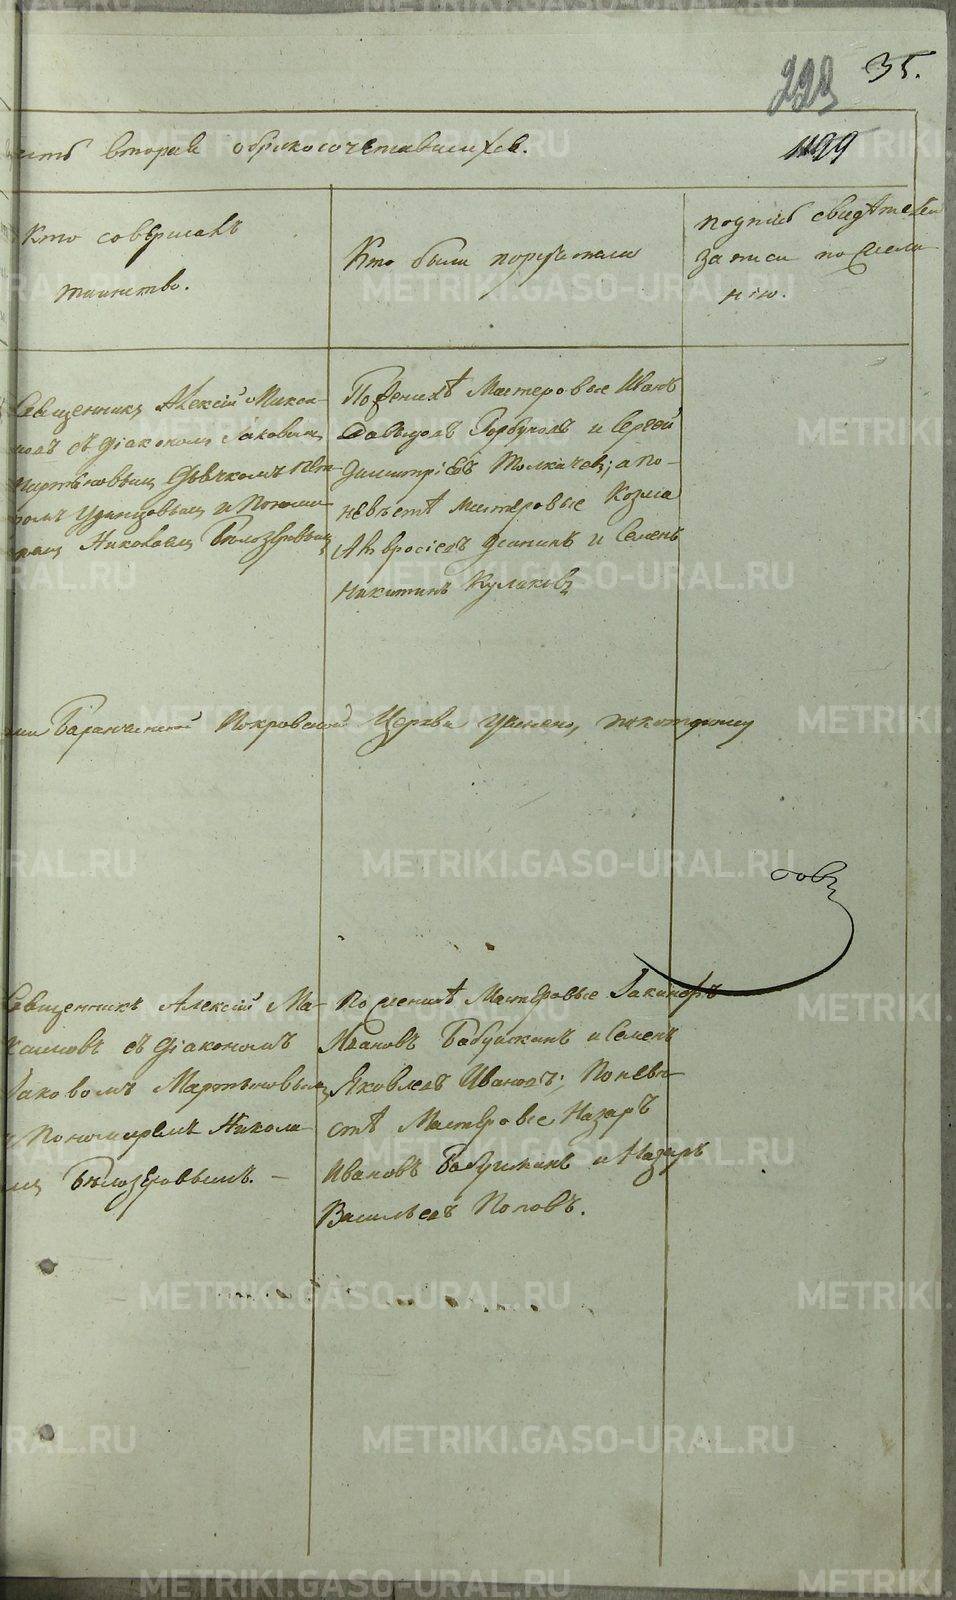 35.
229
1199
вторая о бракосочетавшихся.
Кто совершалъ
таинство.
Кто были поручители
подпись свидѣтелей
записи по желa
нiю.
Священникъ Алексiй Макси-
мовъ съ дiакономъ Iаковымъ
Мартыновымъ Дьячкомъ Пет-
ромъ Удинцовымъ и Поном-
Николаемъ Бѣлозеровымъ
По женихѣ Мастеровые Иванъ
Давыдовъ Горбуновъ и Сергей
Димитрiевъ Толкачевъ; а по-
невѣстѣ мастеровые Козма
Амвросiевъ и Семенъ
Никитинъ Кулаковъ
Баранчинской Покровской Церкви учинено,
совъ
Священникъ Алексiй Ма-
ксимовъ съ дiакономъ
Iаковомъ Мартыновымъ
и Пономаремъ Никола-
емъ Бѣлозеровымъ. —
По женихѣ Мастеровые Iакинфъ
Ивановъ Бабушкинъ и Семенъ
Яковлевъ Ивановъ; По невѣ
стѣ Мастеровые Назаръ
Ивановъ Бабушкинъ и Назаръ
Васильевъ Поповъ.
METRIKI.GASO-URAL.RU